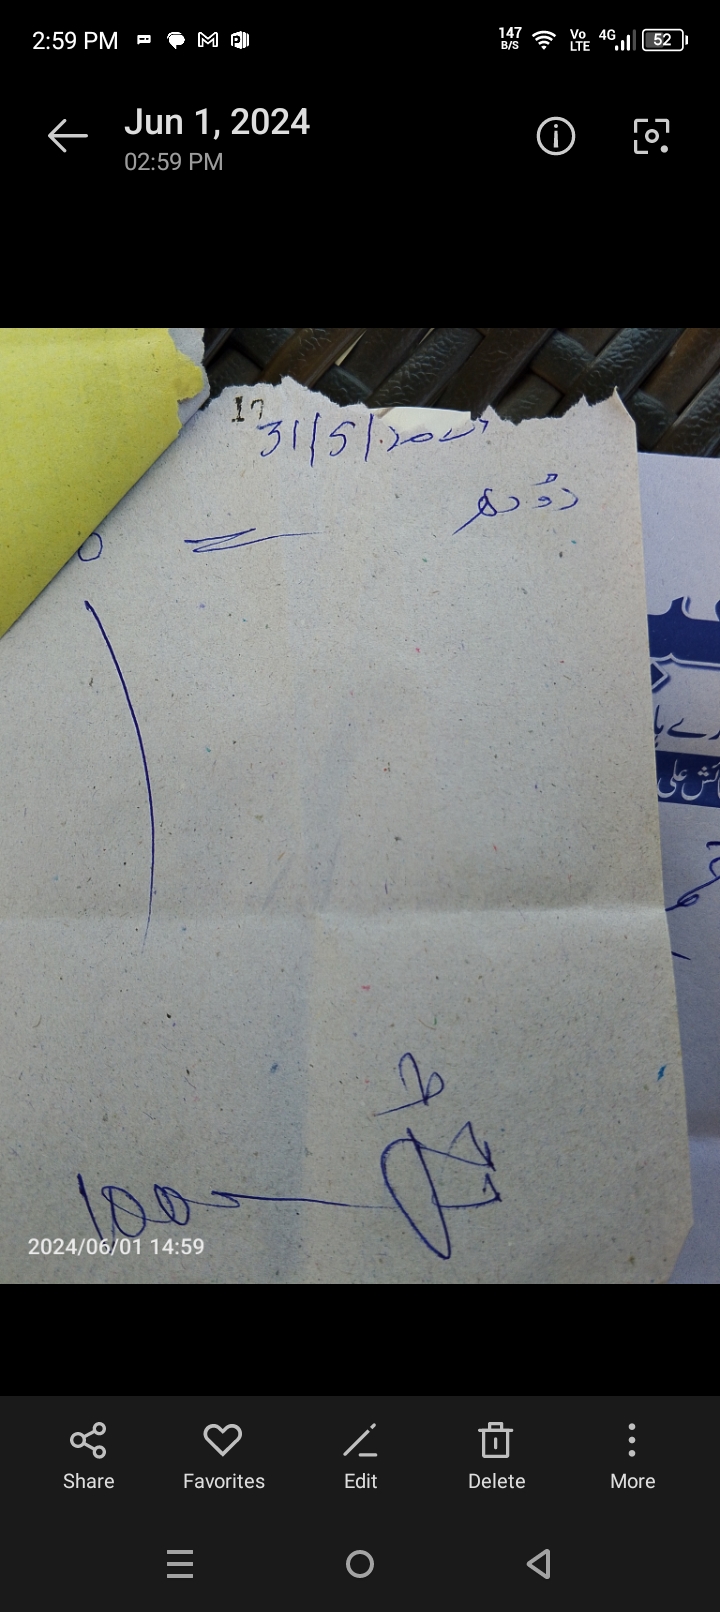 2:59 PM 147 B/S Vo LTE 4G 52
Jun 1, 2024
02:59 PM
17
31/5/202
دودھ
رے پا
ئش علی
1000
2024/06/01 14:59
Share Favorites Edit Delete More